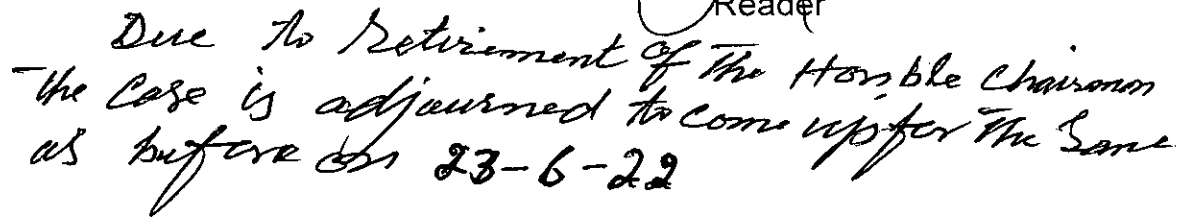 Reader
Due to Retirement of The Hon,ble Chairman
The Case is adjourned to come up for The Same
as before on 23-6-22